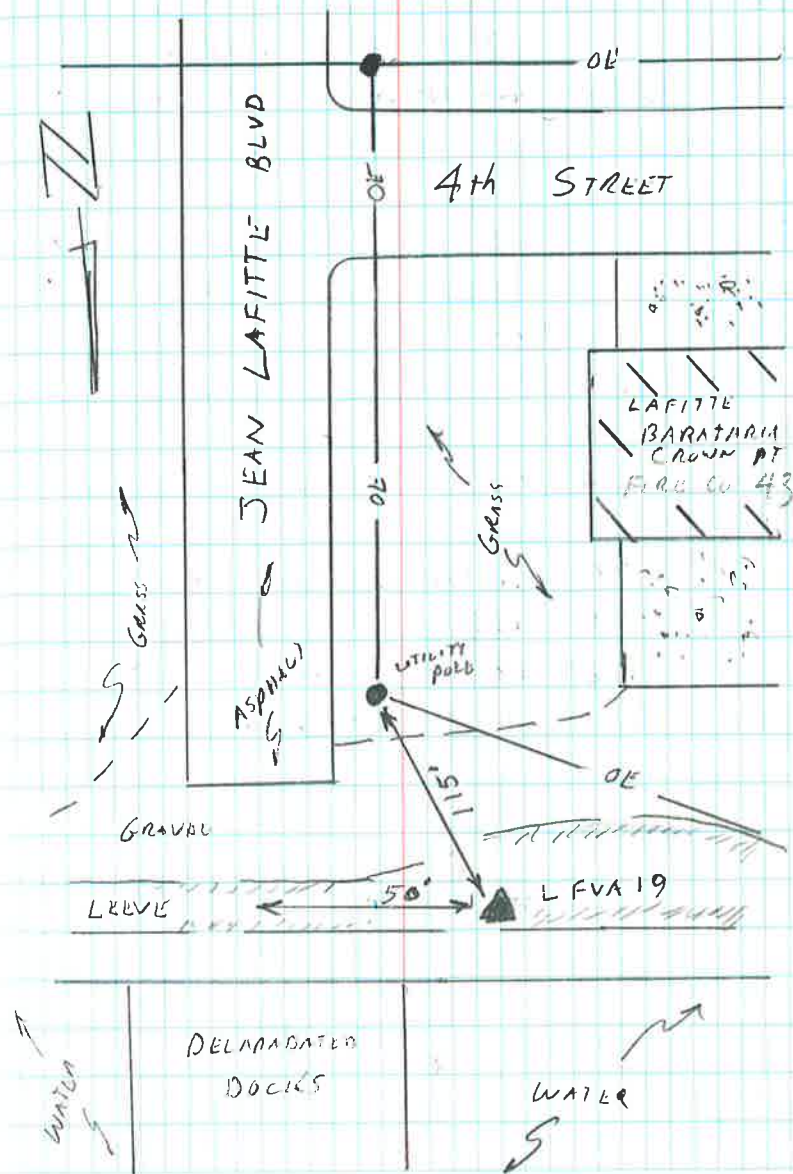 OE
N
JEAN LAFITTE BLVD
OE
4th STREET
LAFITTE
BARATARIA
CROWN PT
FIRE CO 43
OE
GRASS
GRASS
UTILITY
POLE
ASPHALT
115'
OE
GRAVAL
LEEVE
50'
LFVA19
DELAPADATED
DOCKS
WATER
WATER